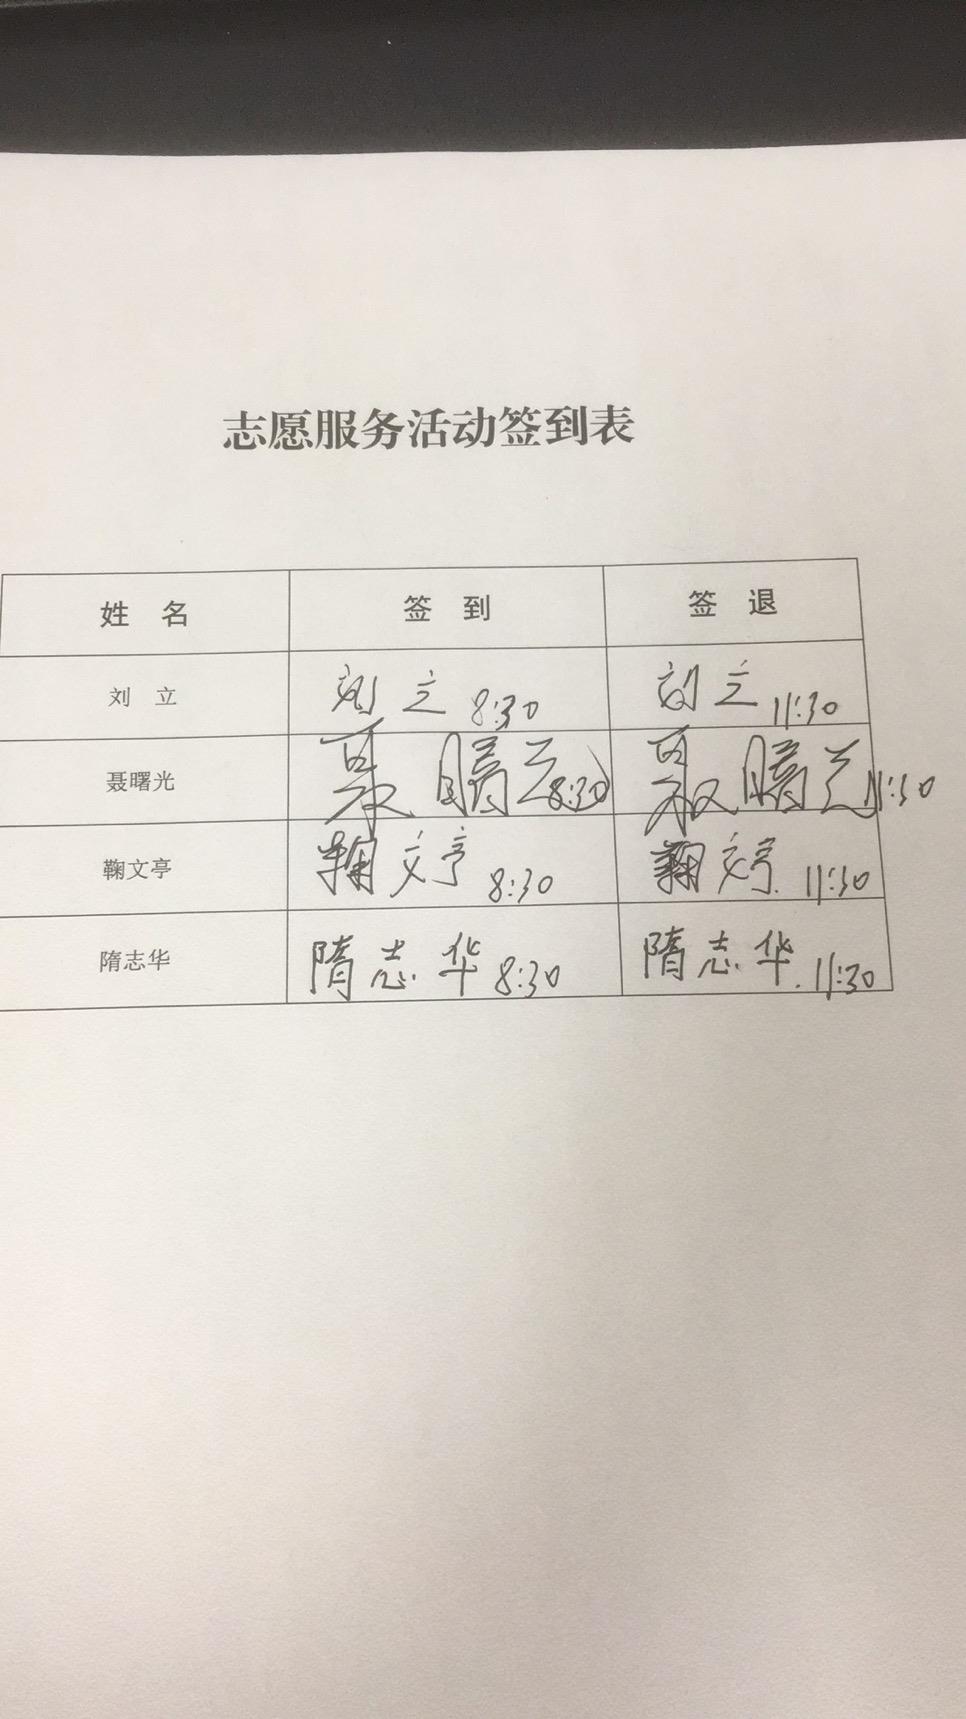 志愿服务活动签到表
姓 名 签 到 签 退
刘 立 刘立 8:30 刘立 11:30
聂曙光 聂曙光 8:30 聂曙光 11:30
鞠文亭 鞠文亭 8:30 鞠文亭. 11:30
隋志华 隋志华 8:30 隋志华. 11:30